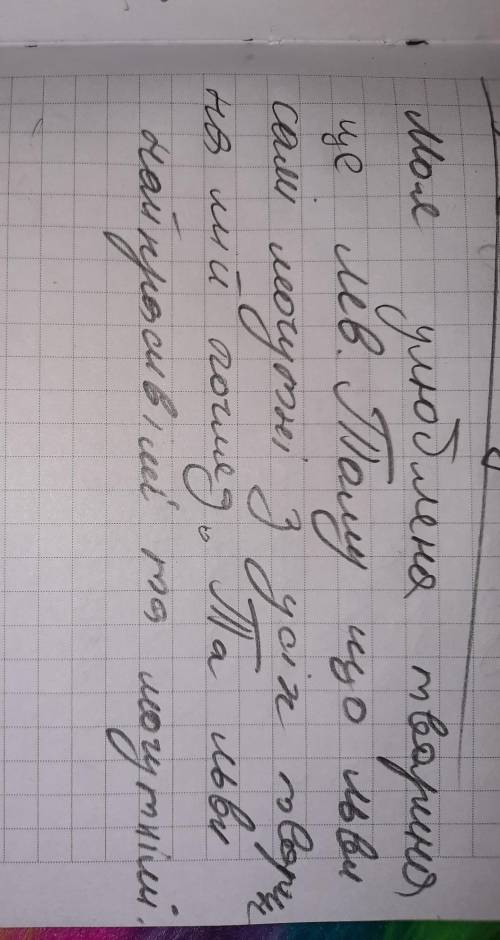 Моя улюблена тварина
це лев. Тому що льви
самі могутні з усіх твар
на мій погляд. Та льви
найкрасивілі та могутнілі.